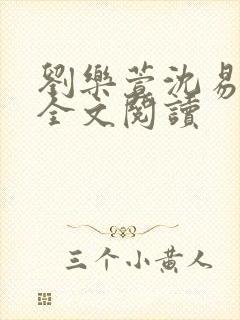 劉樂萱沈易
全文閱讀
三个小黄人